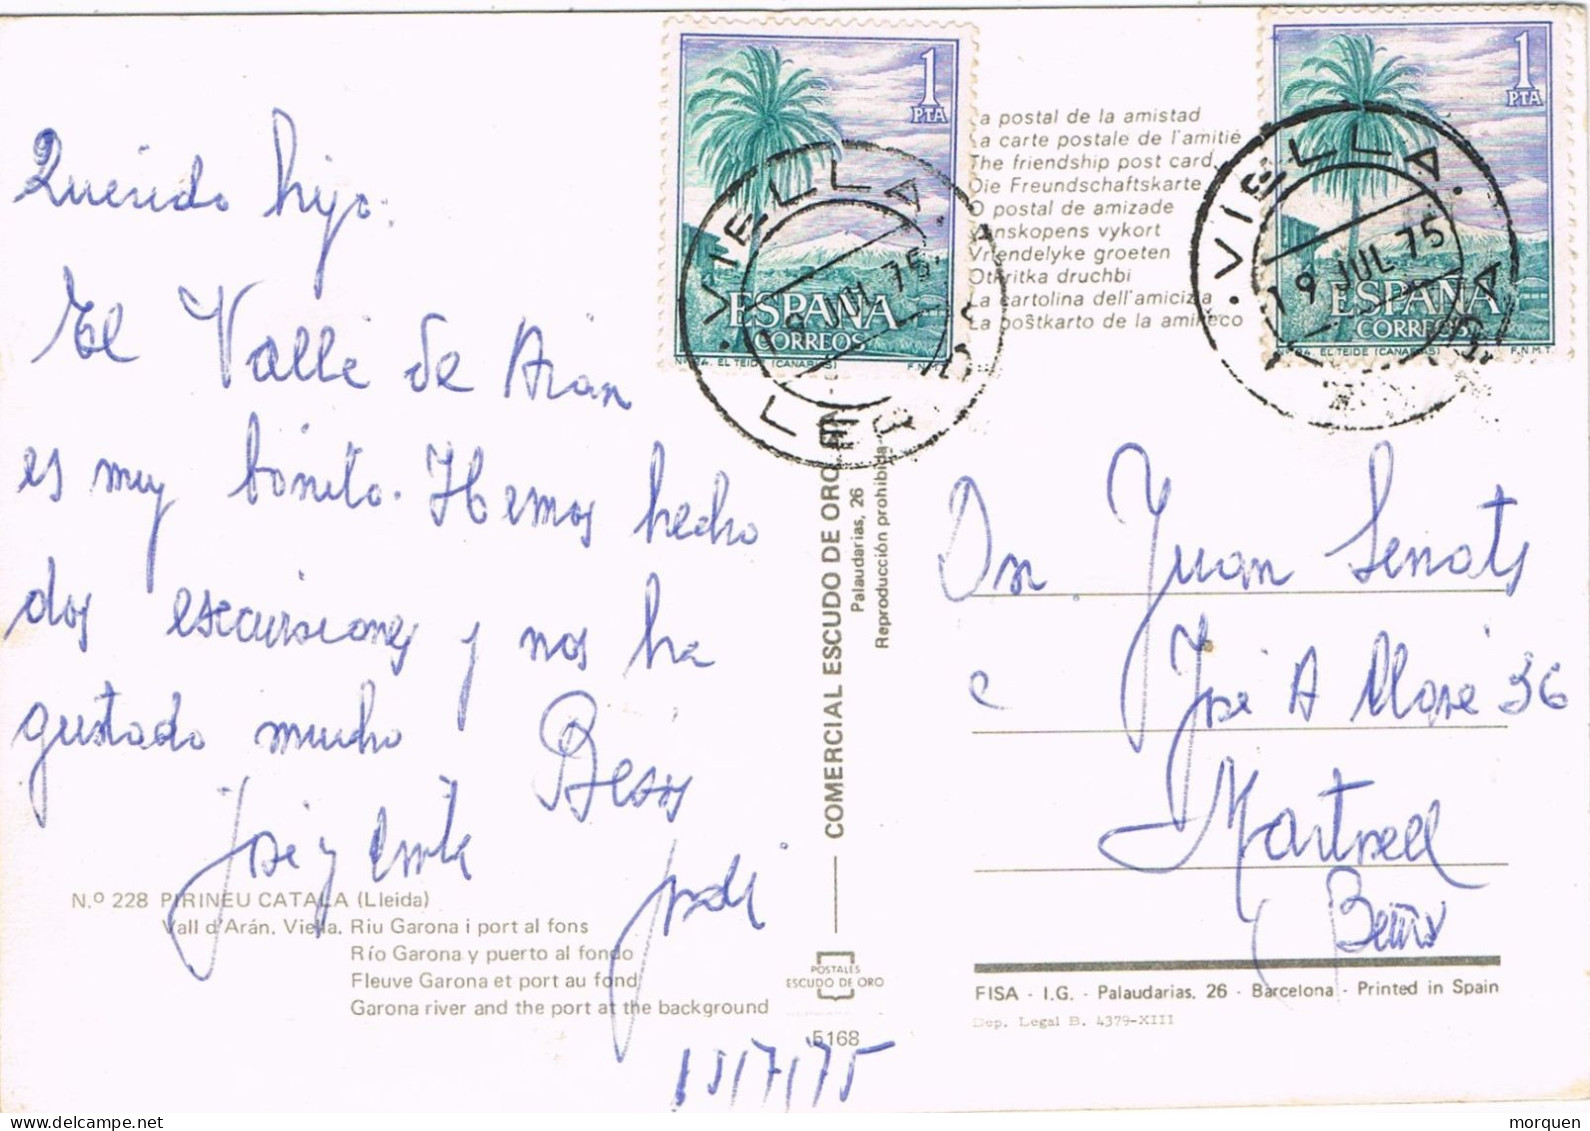 Querido hijo:
El Valle de Aran
es muy bonito. Hemos hecho
dos escursiones y nos ha
gustado mucho
Besos
José y
Jordi
N.º 228 PIRINEU CATALA (Lleida)
Vall d'Arán. Viella. Riu Garona i port al fons
Río Garona y puerto al fondo
Fleuve Garona et port au fond
Garona river and the port at the background
/7/75
1 PTA
ESPAÑA
CORREOS
EL TEIDE (CANARIAS) F.N.M.T.
VIELLA
19 JUL 75
La postal de la amistad
La carte postale de l'amitié
The friendship post card
Die Freundschaftskarte
O postal de amizade
Vanskopens vykort
Vriendelyke groeten
Otkritka druchbi
La cartolina dell'amicizia
La poŝtkarto de la amikeco
1 PTA
ESPAÑA
CORREOS
EL TEIDE (CANARIAS) F.N.M.T.
VIELLA
19 JUL 75
COMERCIAL ESCUDO DE ORO
Palaudarias, 26
Reproducción prohibida
POSTALES
ESCUDO DE ORO
5168
Dn. Juan Senats
c José A 36
Martorell
FISA - I.G. - Palaudarias, 26 - Barcelona - Printed in Spain
Dep. Legal B. 4379-XIII
morquen